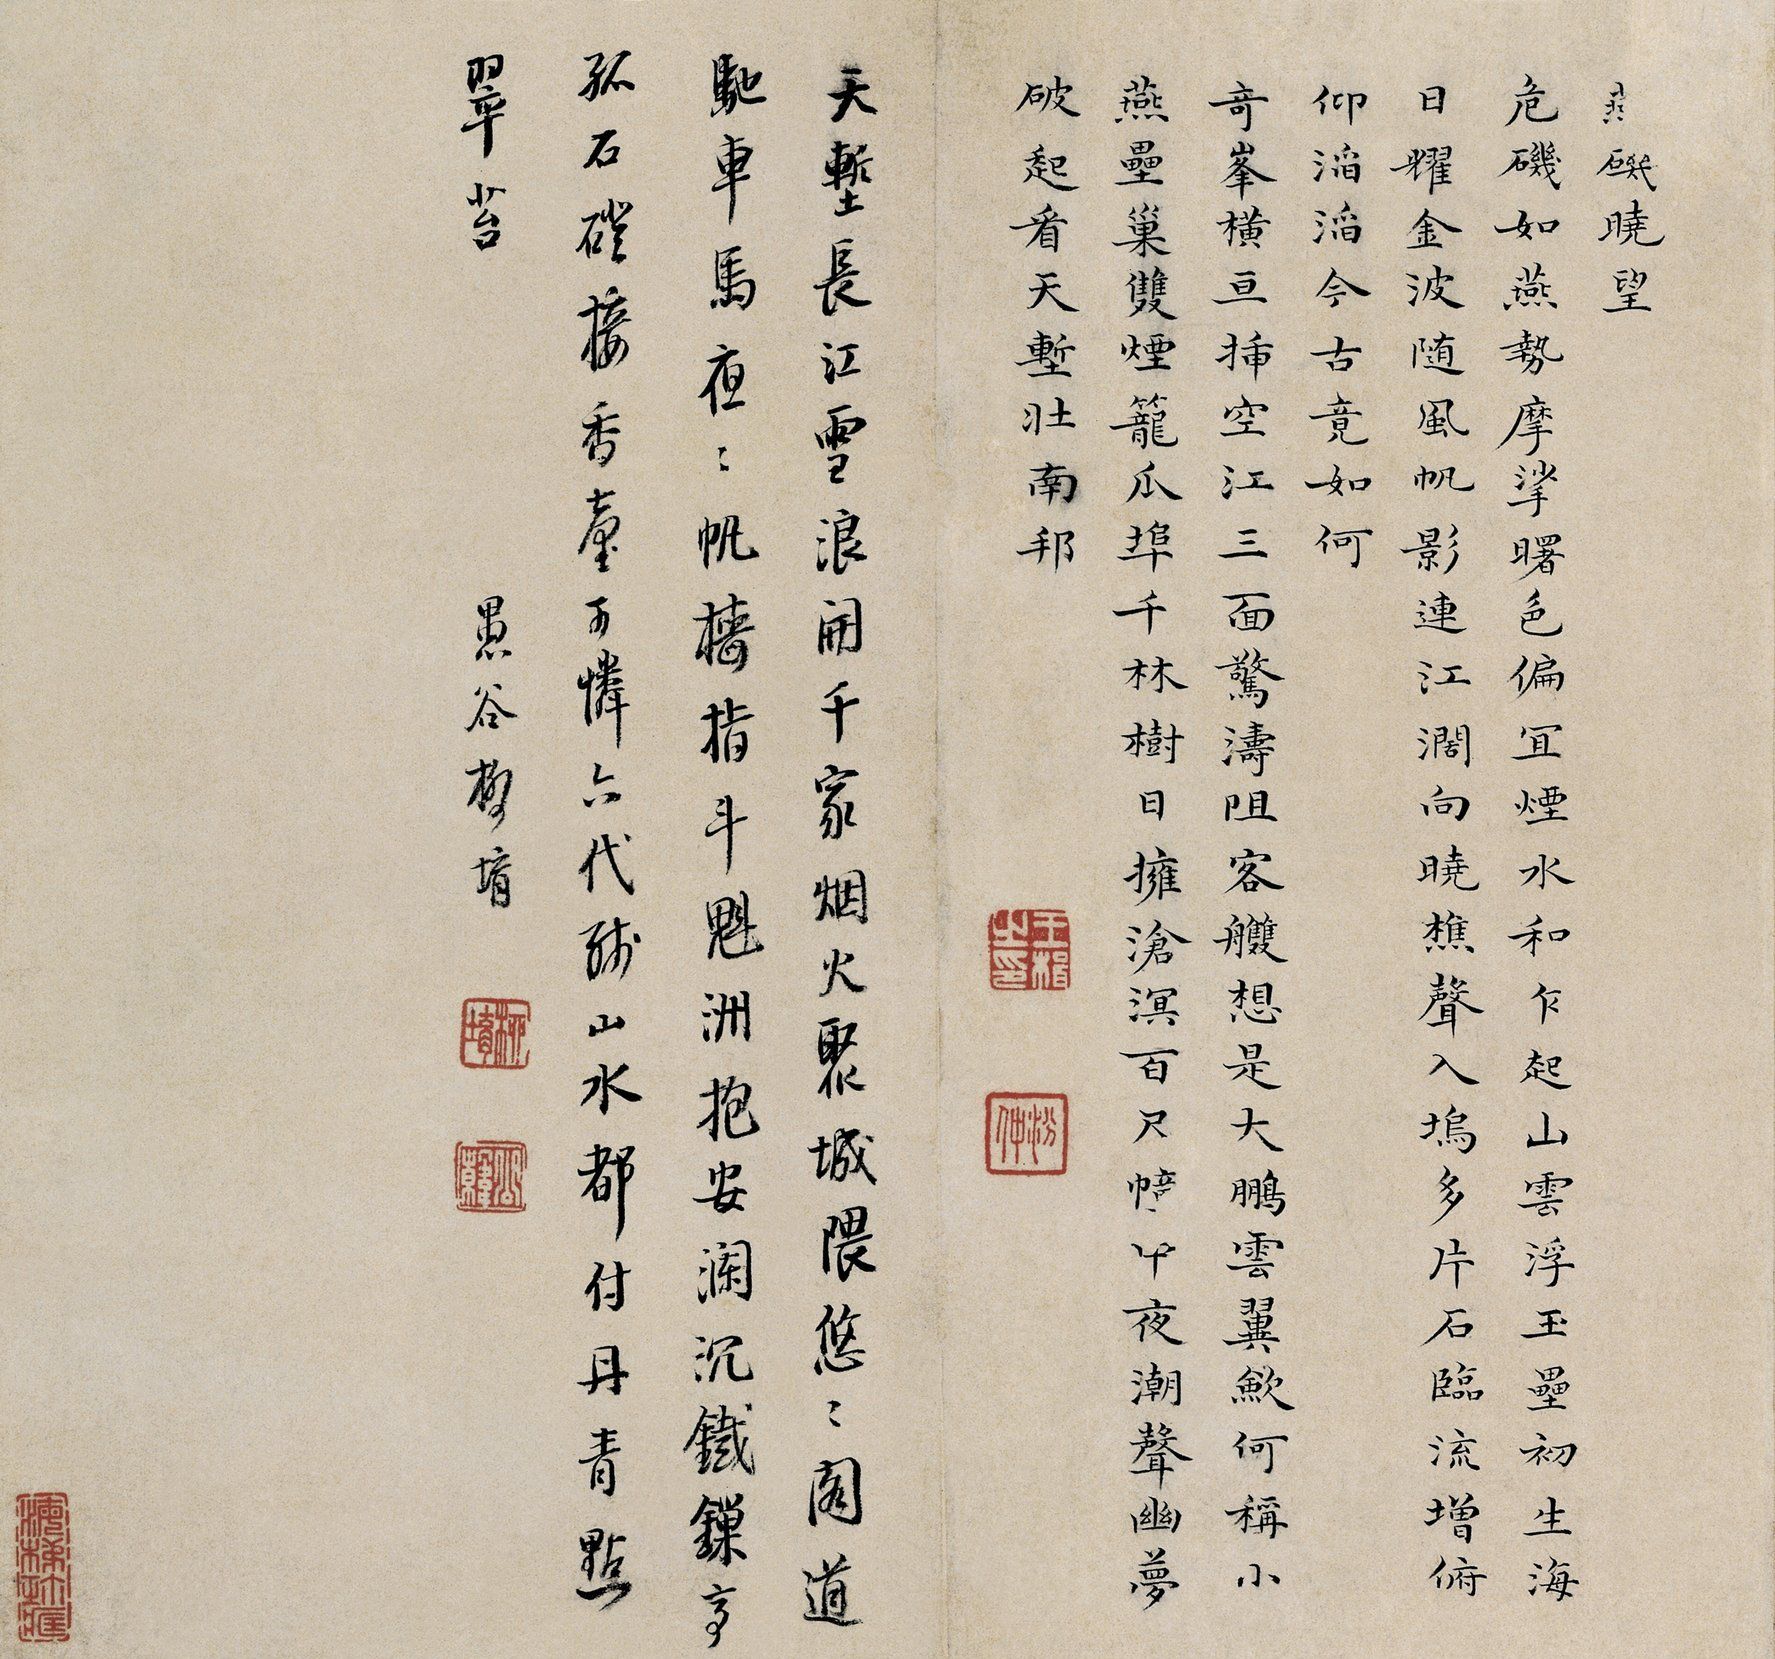 燕磯曉望
危磯如燕勢摩挲曙色偏冝煙水和乍起山雲浮玉壘初生海
日耀金波随風帆影連江濶向曉樵聲入塢多片石臨流增俯
仰滔滔今古竟如何
竒峯橫亘揷空江三面驚濤阻客艭想是大鵬雲翼歛何稱小
燕壘巢雙煙籠瓜埠千林樹日擁滄溟百尺幢半夜潮聲幽夢
破起看天塹壮南邦
天塹長江雪浪開千家烟火聚城隈悠〻閣道
馳車馬夜〻帆檣指斗魁洲抱安瀾沉鐵鏁亭
孤石磴接香臺可憐六代殘山水都付丹青點
翠苔
愚谷柳堉
王楫之印
汾仲
柳堉
公韓